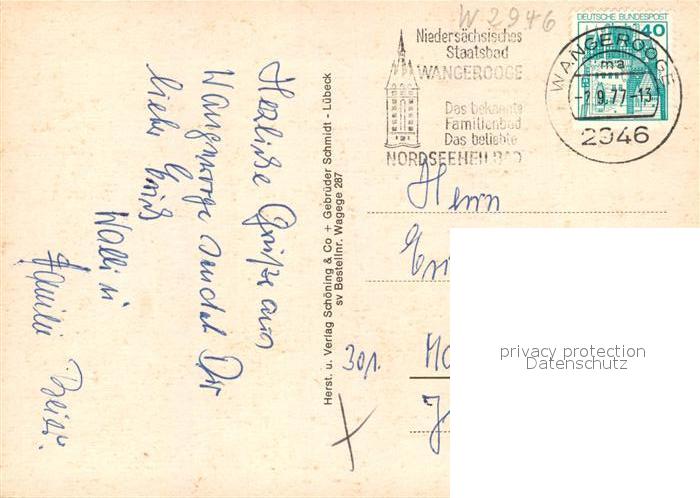 W 2946
Niedersächsisches
Staatsbad
WANGEROOGE
Das bekannte
Familienbad
Das beliebte
NORDSEEHEILBAD
DEUTSCHE BUNDESPOST
40
WANGEROOGE
ma
9.77-13
2946
Herzliche Grüße aus
Wangerooge sendet Dir
liebe
Walli u
Familie
Herst. u. Verlag Schöning & Co + Gebrüder Schmidt - Lübeck
sv Bestellnr. Wagege 287
Herrn
301
privacy protection
Datenschutz